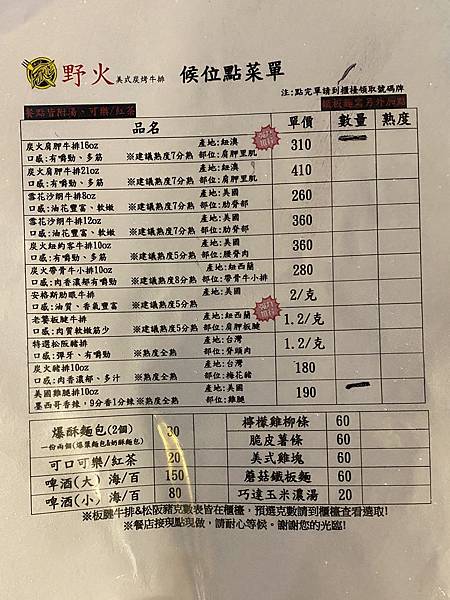 野火美式炭烤牛排 候位點菜單
注:點完單請到櫃檯領取號碼牌
餐點皆附湯、可樂/紅茶 鐵板麵需另外加點
品名 單價 數量 熟度
炭火肩胛牛排16oz 產地:紐澳 310
口感:有嚼勁、多筋 ※建議熟度7分熟 部位:肩胛里肌
炭火肩胛牛排21oz 產地:紐澳 410
口感:有嚼勁、多筋 ※建議熟度7分熟 部位:肩胛里肌
雪花沙朗牛排8oz 產地:美國 260
口感:油花豐富、軟嫩 ※建議熟度7分熟 部位:肋脊部
雪花沙朗牛排12oz 產地:美國 360
口感:油花豐富、軟嫩 ※建議熟度7分熟 部位:肋脊部
炭火紐約客牛排10oz 產地:美國 360
口感:有嚼勁、多筋 ※建議熟度5分熟 部位:腰脊肉
炭火帶骨牛小排10oz 產地:紐西蘭 280
口感:肉香濃郁有嚼勁 ※建議熟度8分熟 部位:帶骨牛小排
安格斯肋眼牛排 產地:美國 2/克
口感:油質、香氣豐富 ※建議熟度5分熟
老饕板腱牛排 產地:紐西蘭 1.2/克
口感:肉質軟嫩筋少 ※建議熟度5分熟 部位:肩胛板腱
特選松阪豬排 產地:台灣 1.2/克
口感:彈牙、有嚼勁 ※熟度全熟 部位:脊頸肉
炭火豬排10oz 產地:台灣 180
口感:肉香濃郁、多汁 ※熟度全熟 部位:梅花豬
美國雞腿排10oz 產地:美國 190
墨西哥香辣,9分香1分辣※熟度全熟 部位:雞腿
爆酥麵包(2個) 30 檸檬雞柳條 60
一份兩個(爆漿麵包&奶酥麵包) 脆皮薯條 60
可口可樂/紅茶 20 美式雞塊 60
啤酒(大) 海/百 150 蘑菇鐵板麵 60
啤酒(小) 海/百 80 巧達玉米濃湯 20
※板腱牛排&松阪豬克數表皆在櫃檯,預選克數請到櫃檯查看選取!
※餐店接現點現做,請耐心等候。謝謝您的光臨!